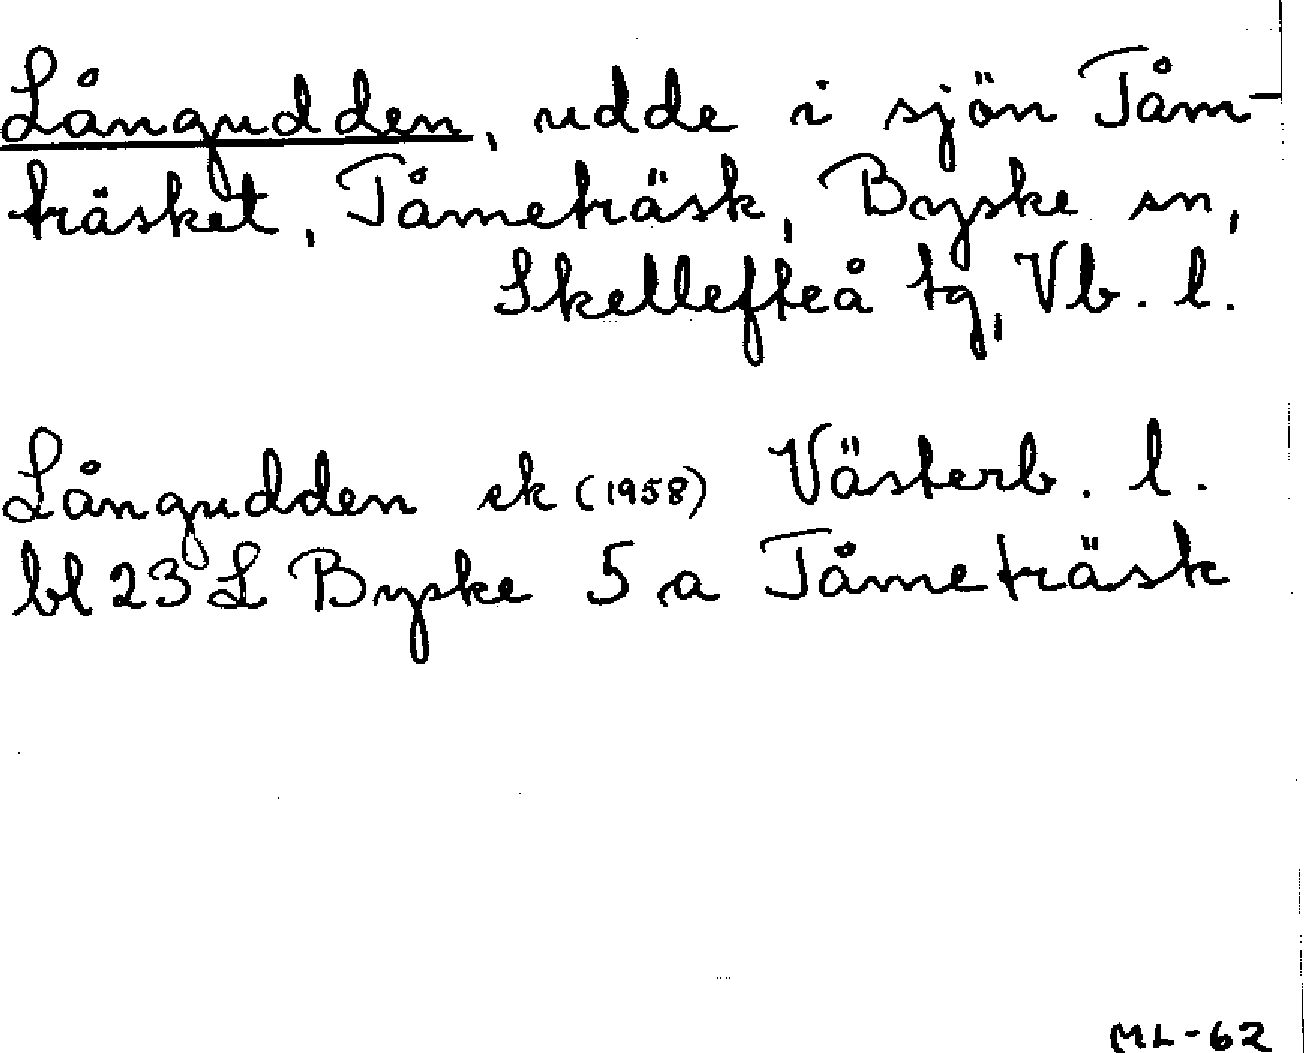 Långudden, udde i sjön Tåm-
träsket, Tåmeträsk, Byske sn,
Skellefteå tg, Vb. l.
Långudden ek (1958) Västerb. l.
bl 23 L Byske 5 a Tåmeträsk
ML-62